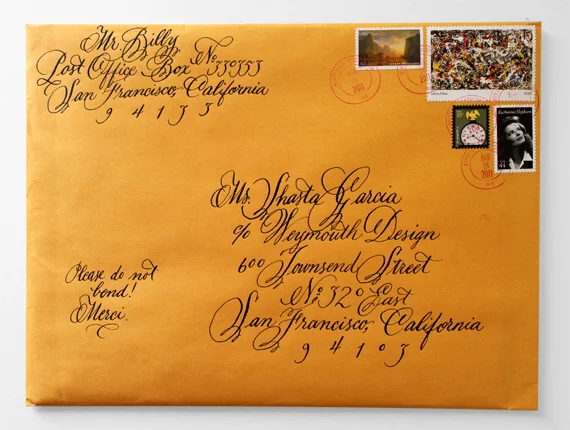 Mr. Billy
Post Office Box No 330353
San Francisco, California
9 4 1 3 3
Ms. Shasta Garcia
c/o Weymouth Design
600 Townsend Street
No. 320 East
San Francisco, California
9 4 1 0 3
Please do not
bend!
Merci.
Katharine Hepburn
44
2011
2011